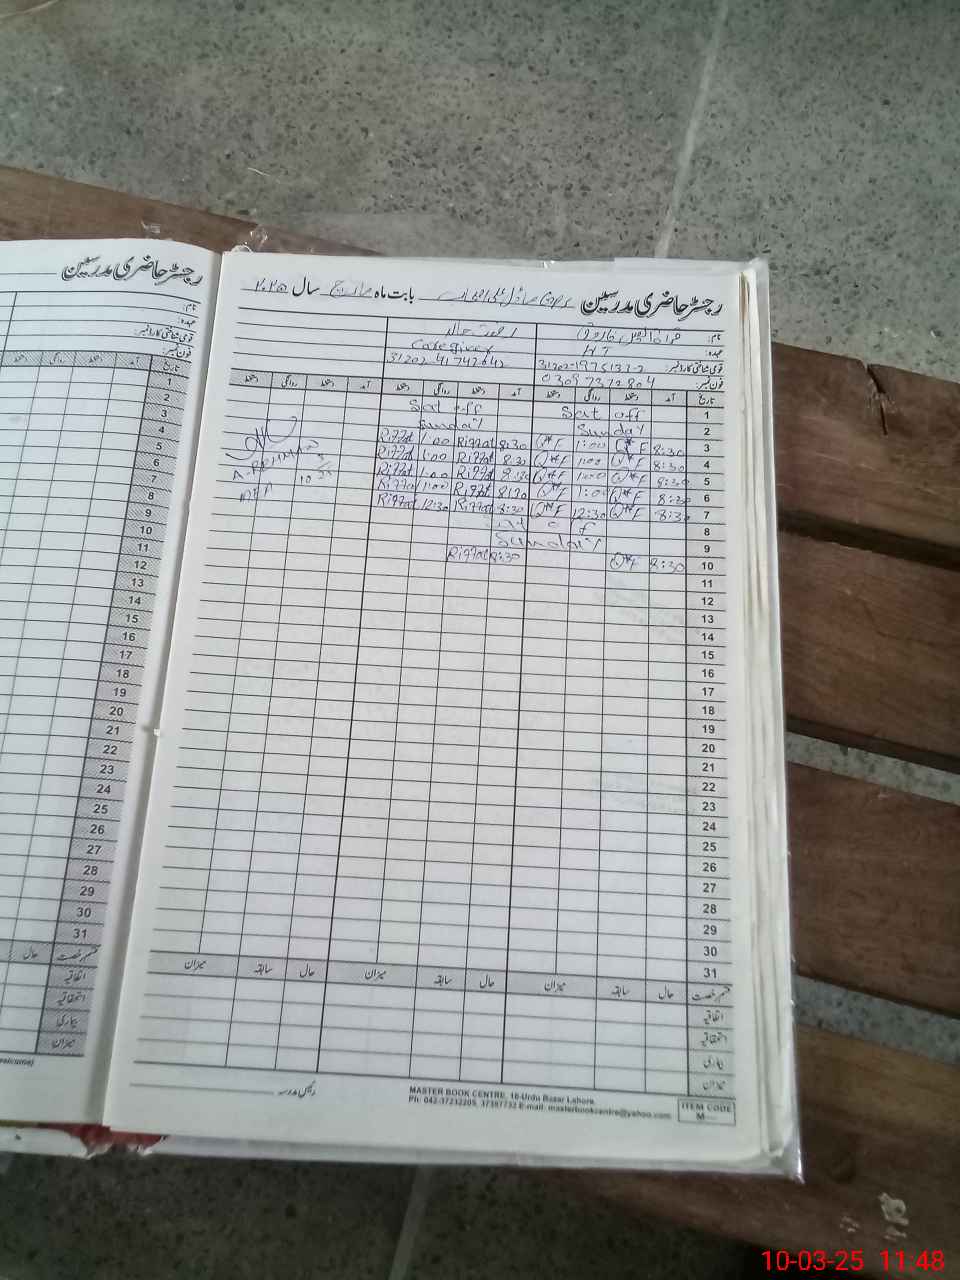 رجسٹر حاضری مدرسین
بابت ماہ مارچ سال ۲۰۲۵
نام:
عہدہ: HT Caregiver
قومی شناختی کارڈ نمبر:
فون نمبر: 03097372804
تاریخ آمد دستخط روانگی دستخط آمد دستخط روانگی دستخط آمد دستخط روانگی دستخط
1 Sat off Sat off
2 Sunday Sunday
3 8:30 Q*F 1:00 Q*F 8:30 Riffat 1:00 Riffat
4 8:30 Q*F 1:00 Q*F 8:30 Riffat 1:00 Riffat
5 8:30 Q*F 1:00 Q*F 8:30 Riffat 1:00 Riffat
6 8:30 Q*F 1:00 Q*F 8:30 Riffat 1:00 Riffat
7 8:30 Q*F 12:30 Q*F 8:30 Riffat 12:30 Riffat
8
9 Sunday
10 8:30 Q*F 8:30 Riffat
11
12
13
14
15
16
17
18
19
20
21
22
23
24
25
26
27
28
29
30
31
A-REHMAN
قسم رخصت حال سابقہ میزان حال سابقہ میزان حال سابقہ میزان
اتفاقیہ
استحقاقیہ
بیماری
میزان
رئیس مدرسہ
MASTER BOOK CENTRE, 16-Urdu Bazar Lahore.
Ph: 042-37212205, 37357732 E-mail: masterbookcentre@yahoo.com
ITEM CODE
M
رجسٹر حاضری مدرسین
نام:
عہدہ:
قومی شناختی کارڈ نمبر:
فون نمبر:
تاریخ آمد دستخط روانگی دستخط
1
2
3
4
5
6
7
8
9
10
11
12
13
14
15
16
17
18
19
20
21
22
23
24
25
26
27
28
29
30
31
قسم رخصت حال
اتفاقیہ
استحقاقیہ
بیماری
میزان
10-03-25 11:48